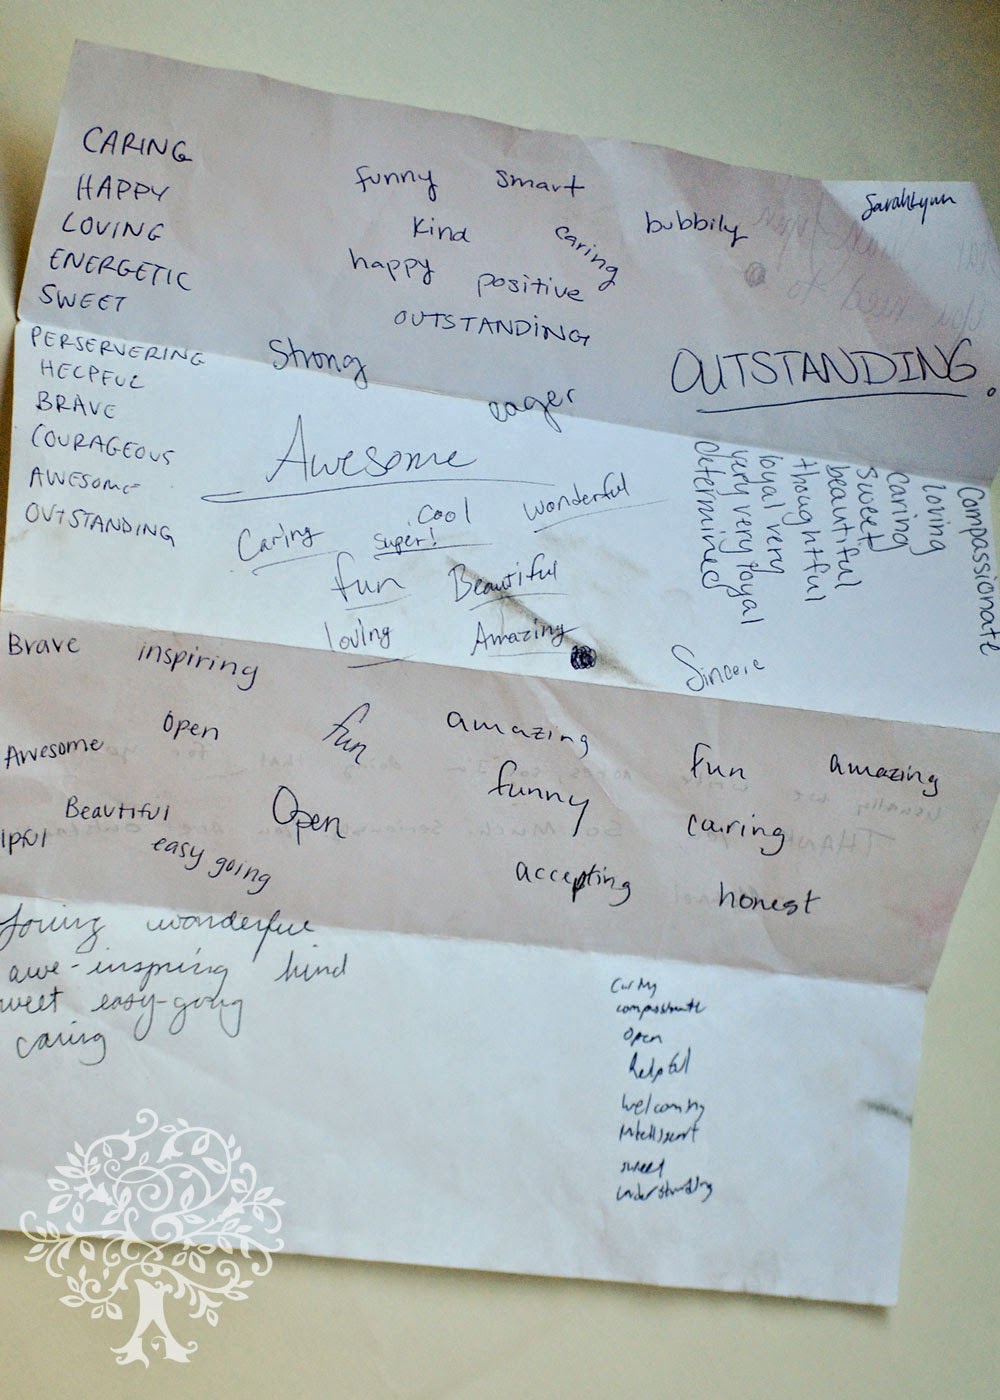 CARING
HAPPY
LOVING
ENERGETIC
SWEET
PERSERVERING
HELPFUL
BRAVE
COURAGEOUS
AWESOME
OUTSTANDING
funny smart
kind caring bubbily
happy positive
OUTSTANDING
SarahLynn
Strong
eager
OUTSTANDING.
Awesome
Caring cool wonderful
super!
fun Beautiful
loving Amazing
Compassionate
loving
Caring
Sweet
beautiful
thoughtful
loyal very
very very loyal
determined
Sincere
Brave inspiring
Awesome open fun amazing fun amazing
Beautiful Open funny caring
lpful easy going accepting honest
loving wonderful
awe-inspiring kind
weet easy-going
caring
Caring
compassionate
open
helpful
welcoming
intelligent
sweet
understanding